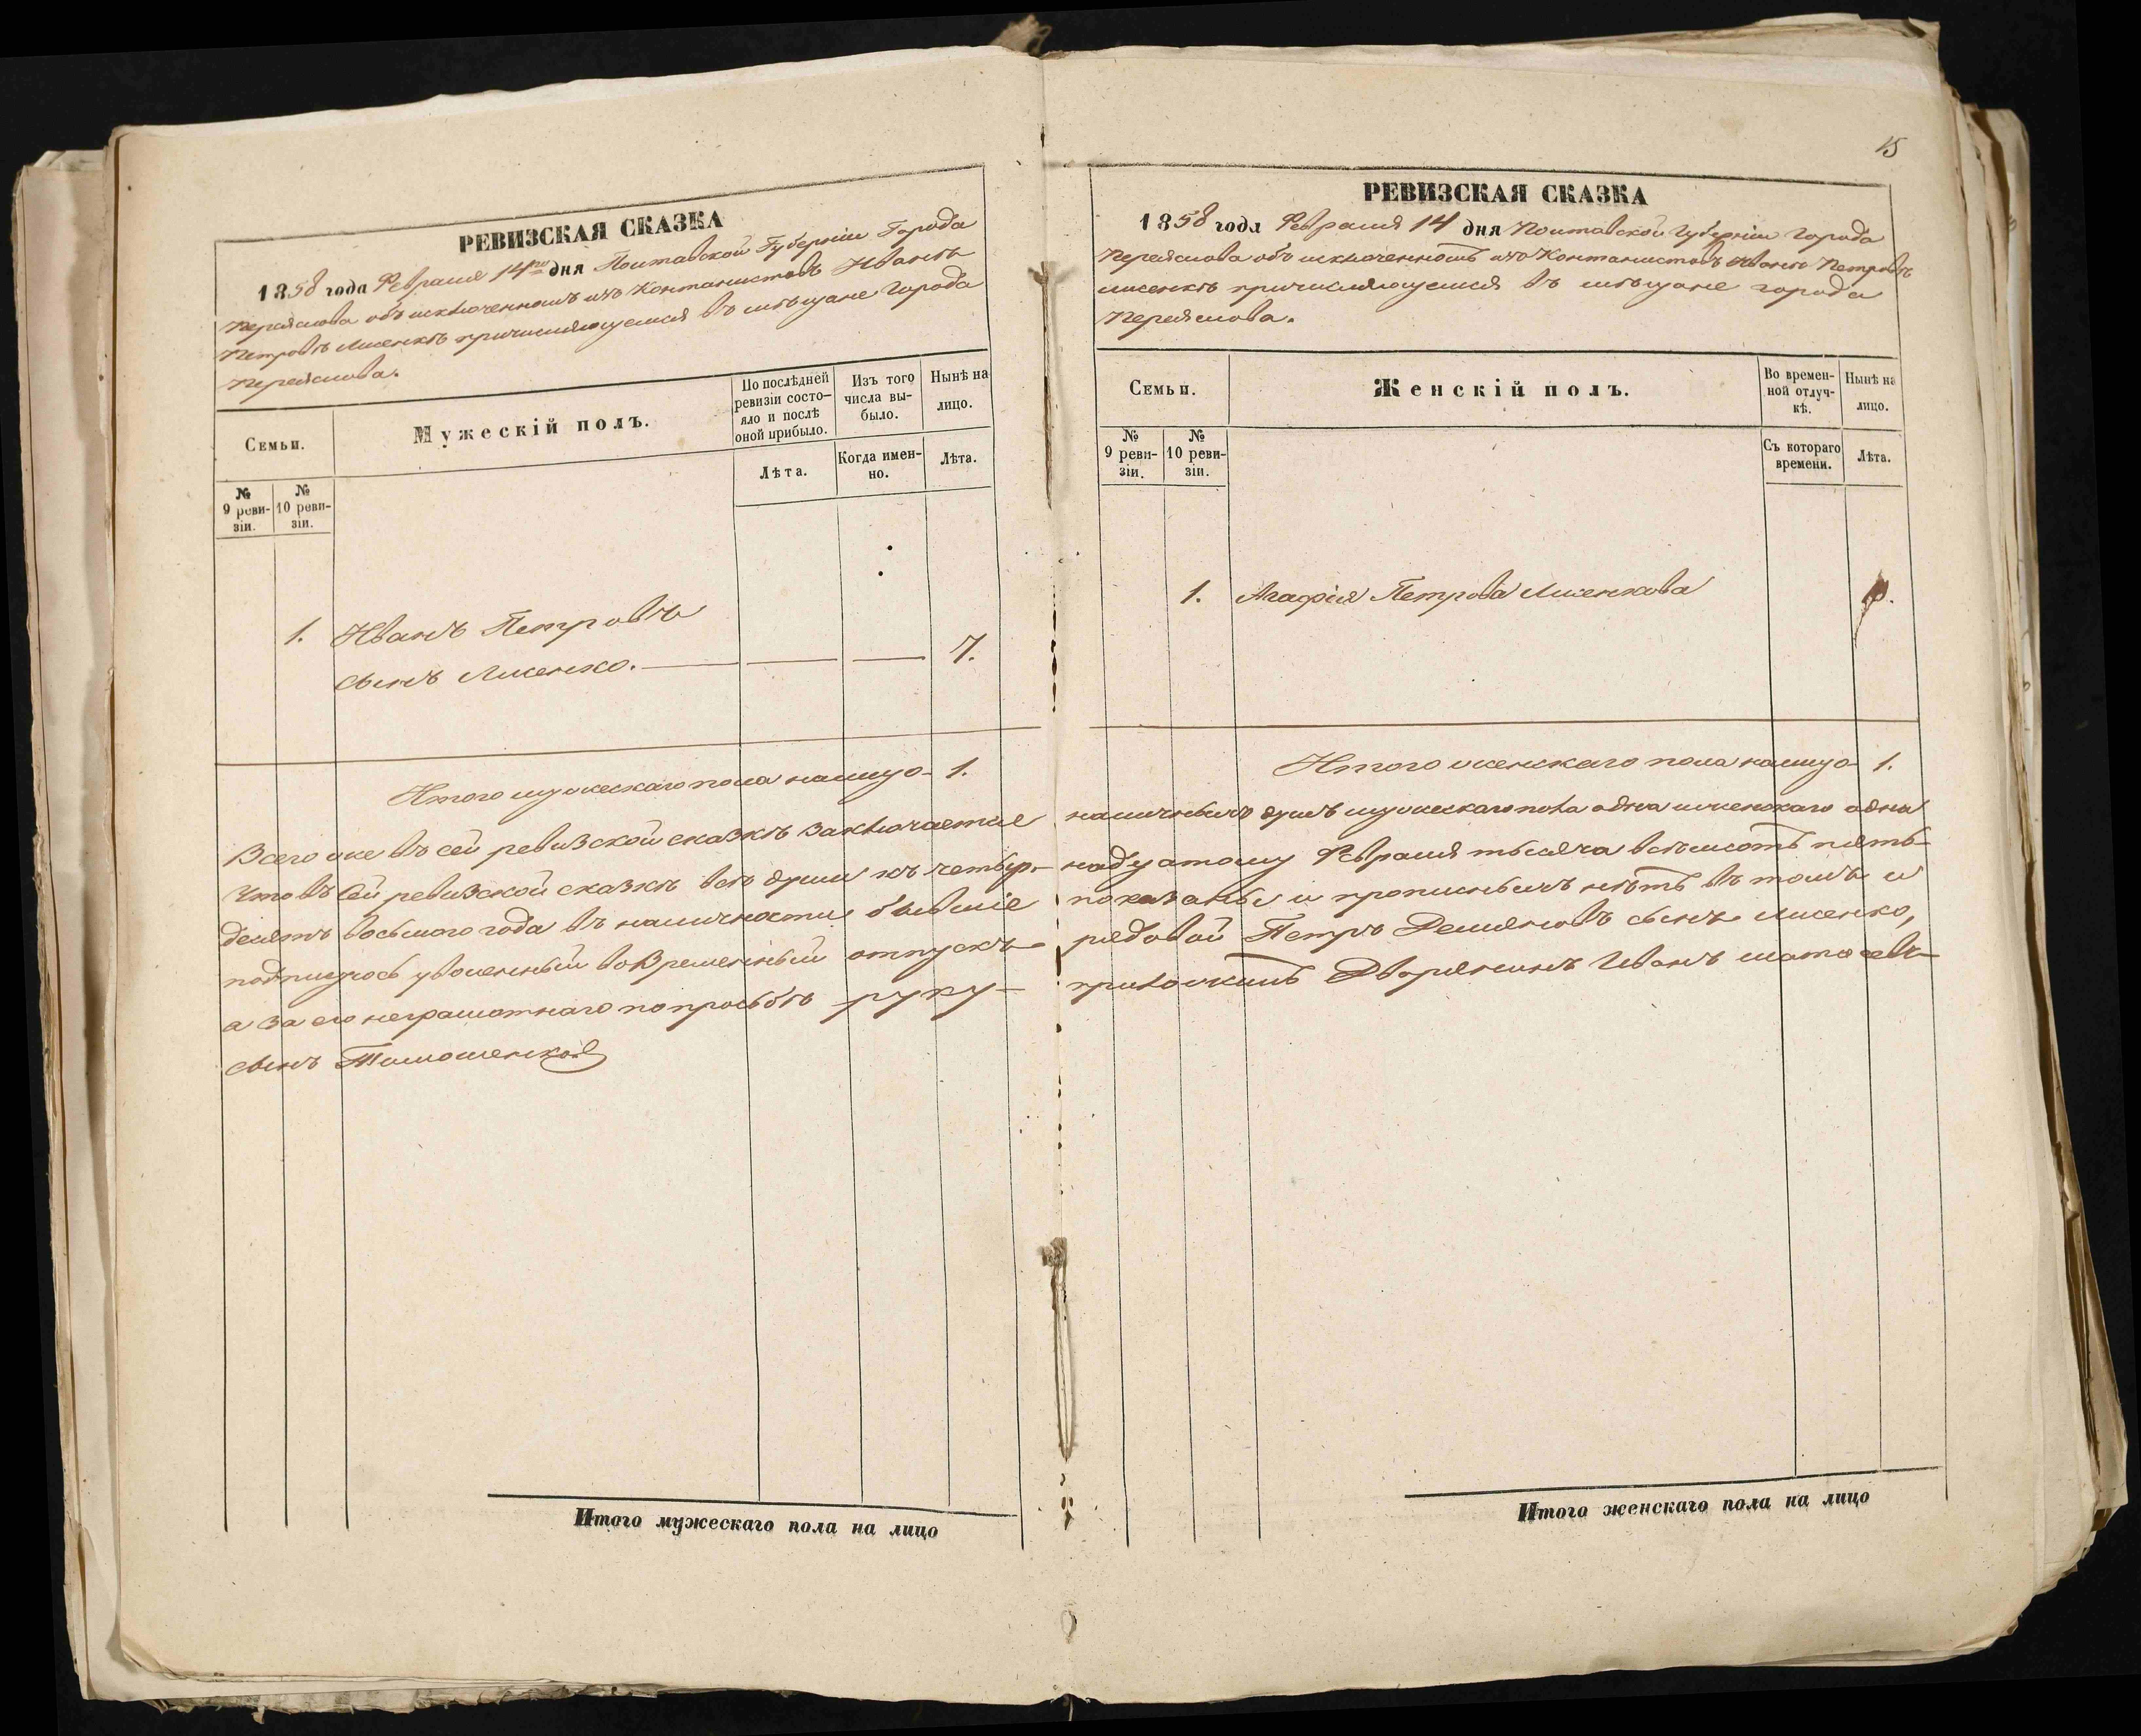 РЕВИЗСКАЯ СКАЗКА
1858 года Февраля 14го дня Полтавской Губерніи Города
Переяслова объ исключенномъ изъ Кантанистовъ Иванѣ
Петровѣ Лисенкѣ причисляющемся въ мѣщане Города
Переяслова.
Семьи.
Мужескій полъ.
По послѣдней ревизіи состо-
яло и послѣ
оной прибыло.
Изъ того
числа вы-
было.
Нынѣ на
лицо.
Лѣта.
Когда имен-
но.
Лѣта.
№
9 реви-
зіи.
№
10 реви-
зіи.
1. Иванъ Петровъ
сынъ Лисенко. 7.
Итого мужескаго пола налицо 1.
Всего же въ сей ревизской сказкѣ заключается
Что въ Сей ревизской сказкѣ всѣ души къ четыр-
десятъ восьмого года въ наличности бывшіе
подпишусь уволенный во Временный отпускъ
а за его неграмотнаго по просьбѣ руку
сынъ Тимошенко
Итого мужескаго пола на лицо
15
РЕВИЗСКАЯ СКАЗКА
1858 года Февраля 14 дня Полтавской Губерніи города
Переяслова объ исключенномъ изъ Контанистовъ Иванѣ Петровѣ
Лисенкѣ причисляющемся въ мѣщане города
Переяслова.
Семьи.
Женскій полъ.
Во времен-
ной отлуч-
кѣ.
Нынѣ на
лицо.
№
9 реви-
зіи.
№
10 реви-
зіи.
Съ котораго
времени.
Лѣта.
1. Агафія Петрова Лисенкова
Итого женскаго пола налицо 1.
наличныхъ душъ мужескаго пола одна и женскаго одна
надцатому Февраля тысяча восемсотъ пять-
показаны и прописныхъ нѣтъ въ томъ и
рядовой Петръ Демяновъ сынъ Лисенко,
приложилъ Дворянинъ Иванъ
Итого женскаго пола на лицо